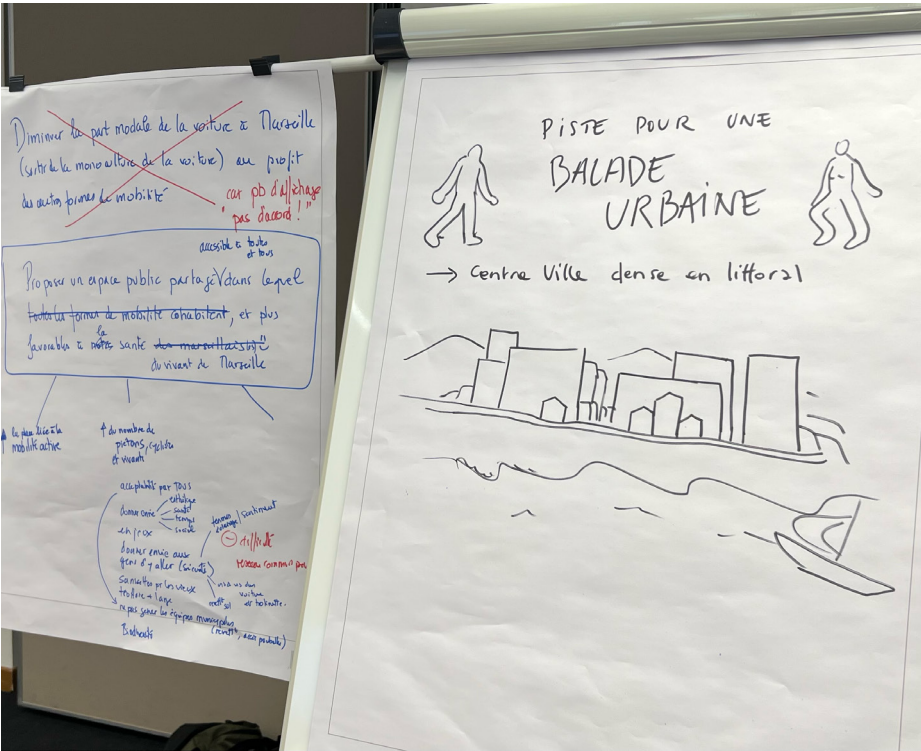 Diminuer la part modale de la voiture à Marseille
(sortir de la monoculture de la voiture) au profit
des autres formes de mobilité
car pb d'affichage
"pas d'accord !"
accessible à toutes
et tous
Proposer un espace public partagé dans lequel
toutes les formes de mobilité cohabitent, et plus
favorables à la notre santé des marseillais(e)s
du vivant de Marseille
la place liée à la
mobilité active
↑ du nombre de
piétons, cyclistes
et vivants
acceptabilité par TOUS
donner envie
esthétique
santé
temps
social
enjeux
donner envie aux
gens d'y aller (sécurité)
sentiment
⊖ difficulté
réseau commun
voiture
trottoir + large
pas gêner les équipes municipales
Biodiversité
PISTE POUR UNE
BALADE
URBAINE
→ Centre Ville dense en littoral